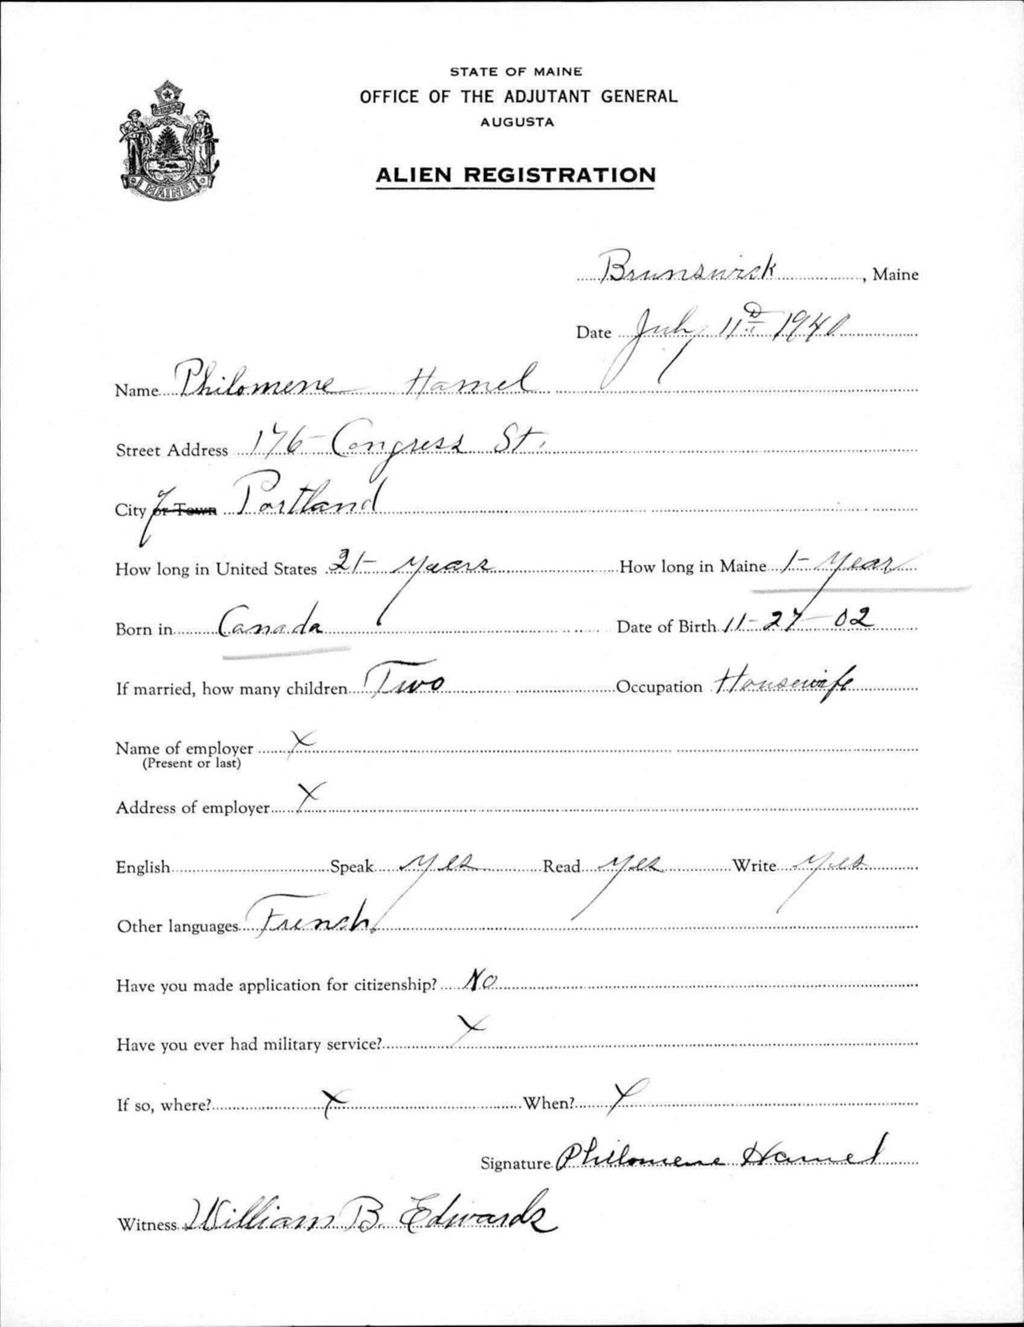 STATE OF MAINE
OFFICE OF THE ADJUTANT GENERAL
AUGUSTA
ALIEN REGISTRATION
MAINE
Brunswick, Maine
Date July 11th 1940
Name Philomene Hamel
Street Address 176 Congress St.
City or Town Portland
How long in United States 21- years How long in Maine 1- Year
Born in Canada Date of Birth 11-27-02
If married, how many children Two Occupation Housewife
Name of employer X
(Present or last)
Address of employer X
English Speak yes Read yes Write yes
Other languages French
Have you made application for citizenship? No
Have you ever had military service? X
If so, where? X When? X
Signature Philomene Hamel
Witness William B. Edwards